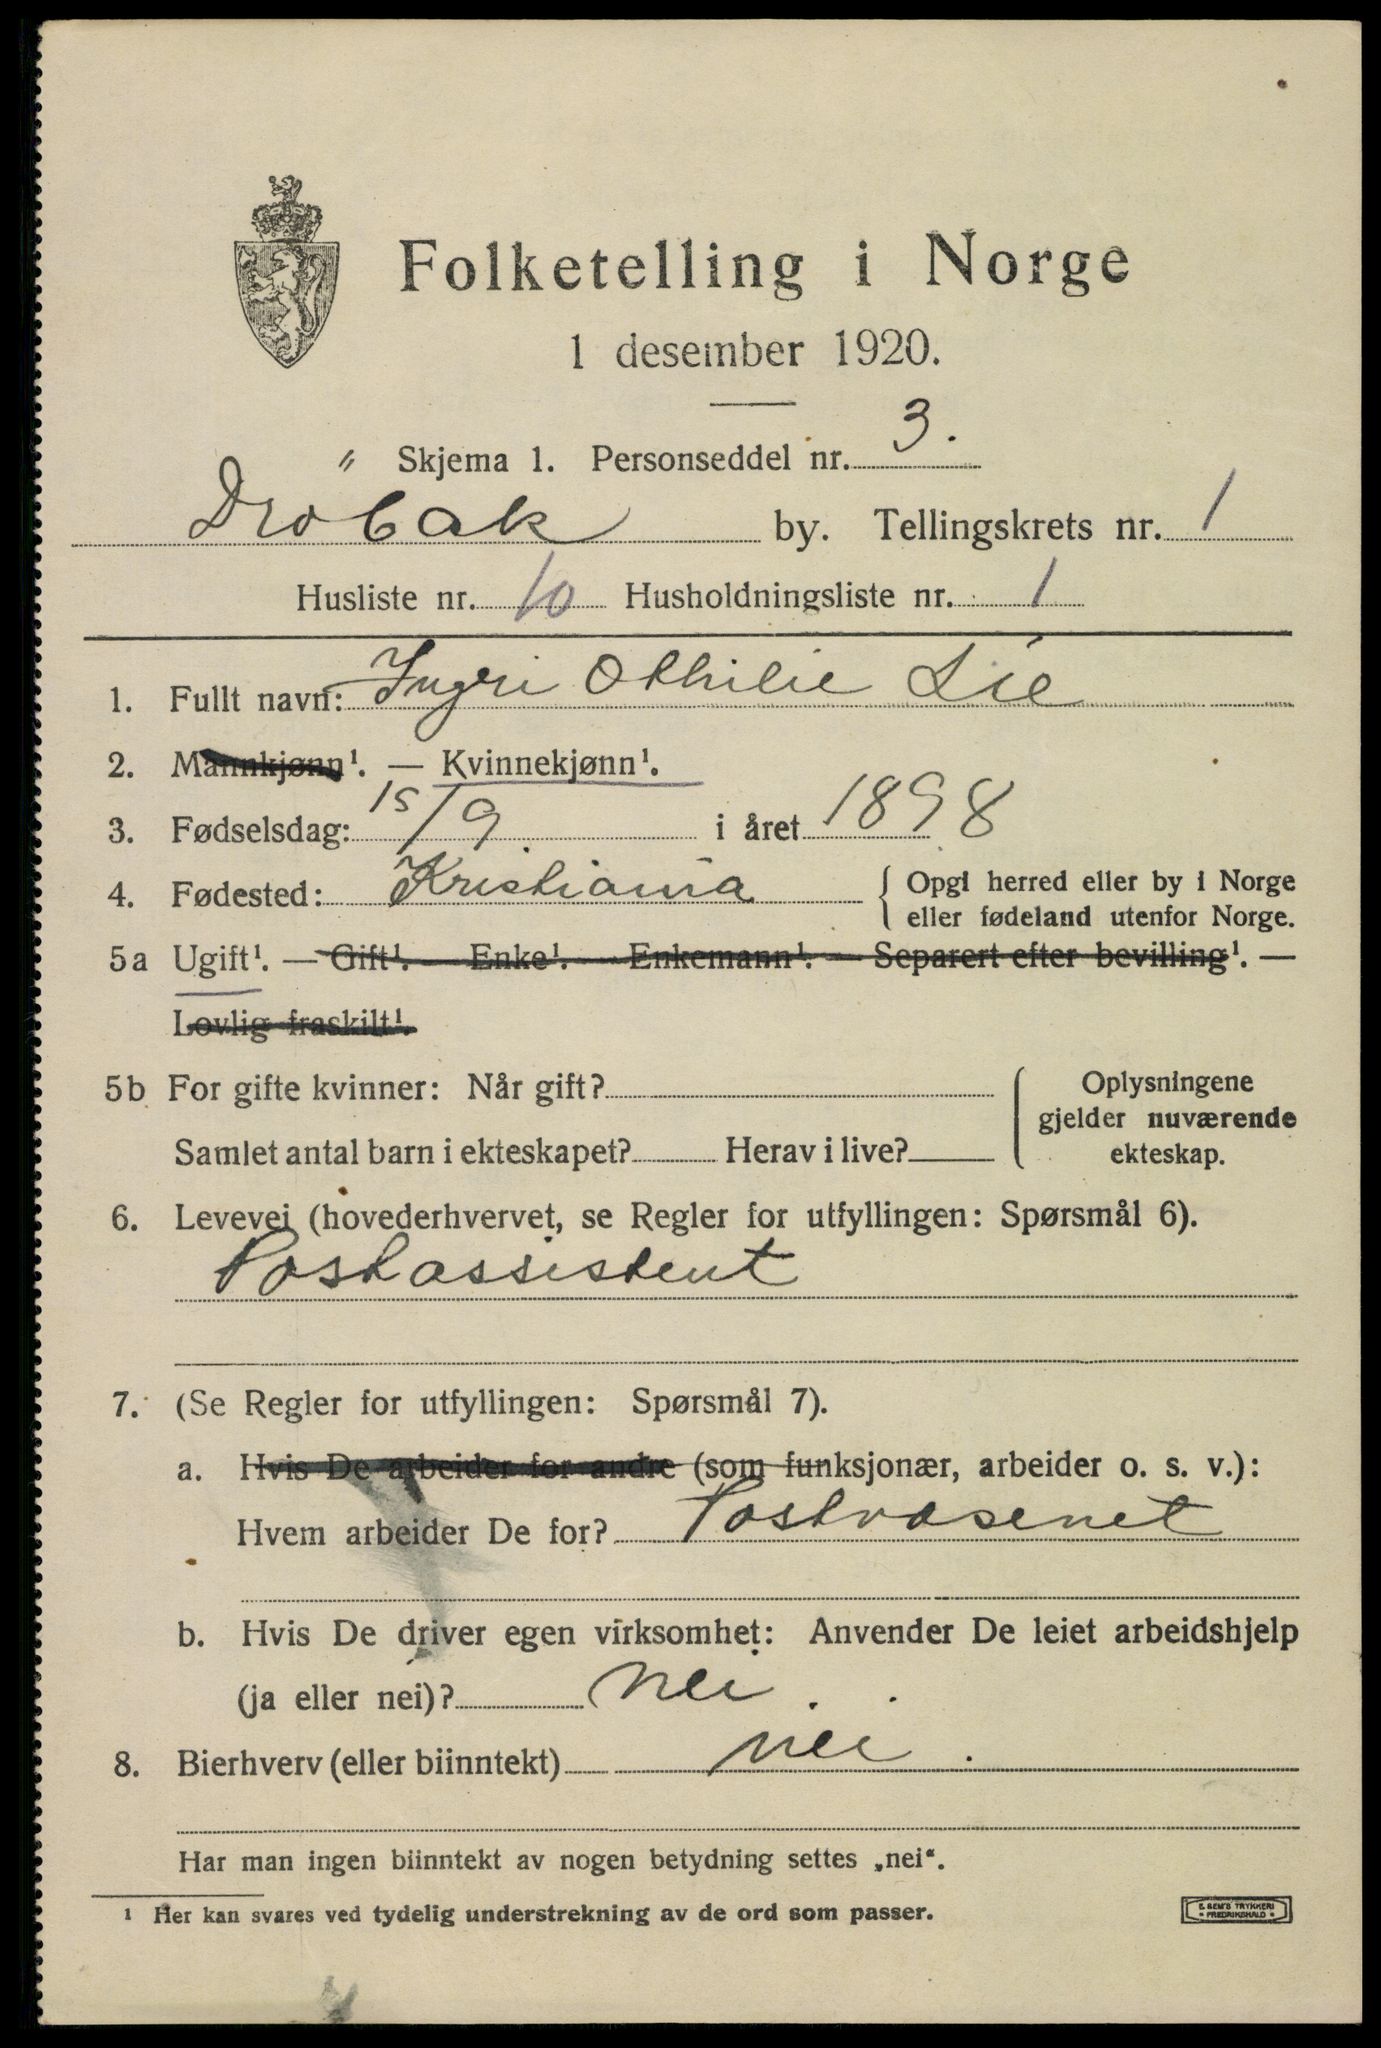 Folketelling i Norge
1 desember 1920.
" Skjema 1. Personseddel nr. 3.
Drobak by. Tellingskrets nr. 1
Husliste nr. 10 Husholdningsliste nr. 1
1. Fullt navn: Ingri Othilie Lie
2. Mannkjønn¹. — Kvinnekjønn¹.
3. Fødselsdag: 15/9 i året 1898
4. Fødested: Kristiania { Opgi herred eller by i Norge
eller fødeland utenfor Norge.
5a Ugift¹. — Gift¹. — Enke¹. — Enkemann¹. — Separert efter bevilling¹. —
Lovlig fraskilt¹.
5b For gifte kvinner: Når gift? { Oplysningene
gjelder nuværende
Samlet antal barn i ekteskapet? Herav i live? ekteskap.
6. Levevei (hovederhvervet, se Regler for utfyllingen: Spørsmål 6).
Postassistent
7. (Se Regler for utfyllingen: Spørsmål 7).
a. Hvis De arbeider for andre (som funksjonær, arbeider o. s. v.):
Hvem arbeider De for? Postvæsenet
b. Hvis De driver egen virksomhet: Anvender De leiet arbeidshjelp
(ja eller nei)? Nei.
8. Bierhverv (eller biinntekt) nei.
Har man ingen biinntekt av nogen betydning settes „nei“.
¹ Her kan svares ved tydelig understrekning av de ord som passer.
E. SEM'S TRYKKERI
• FREDRIKSHALD •